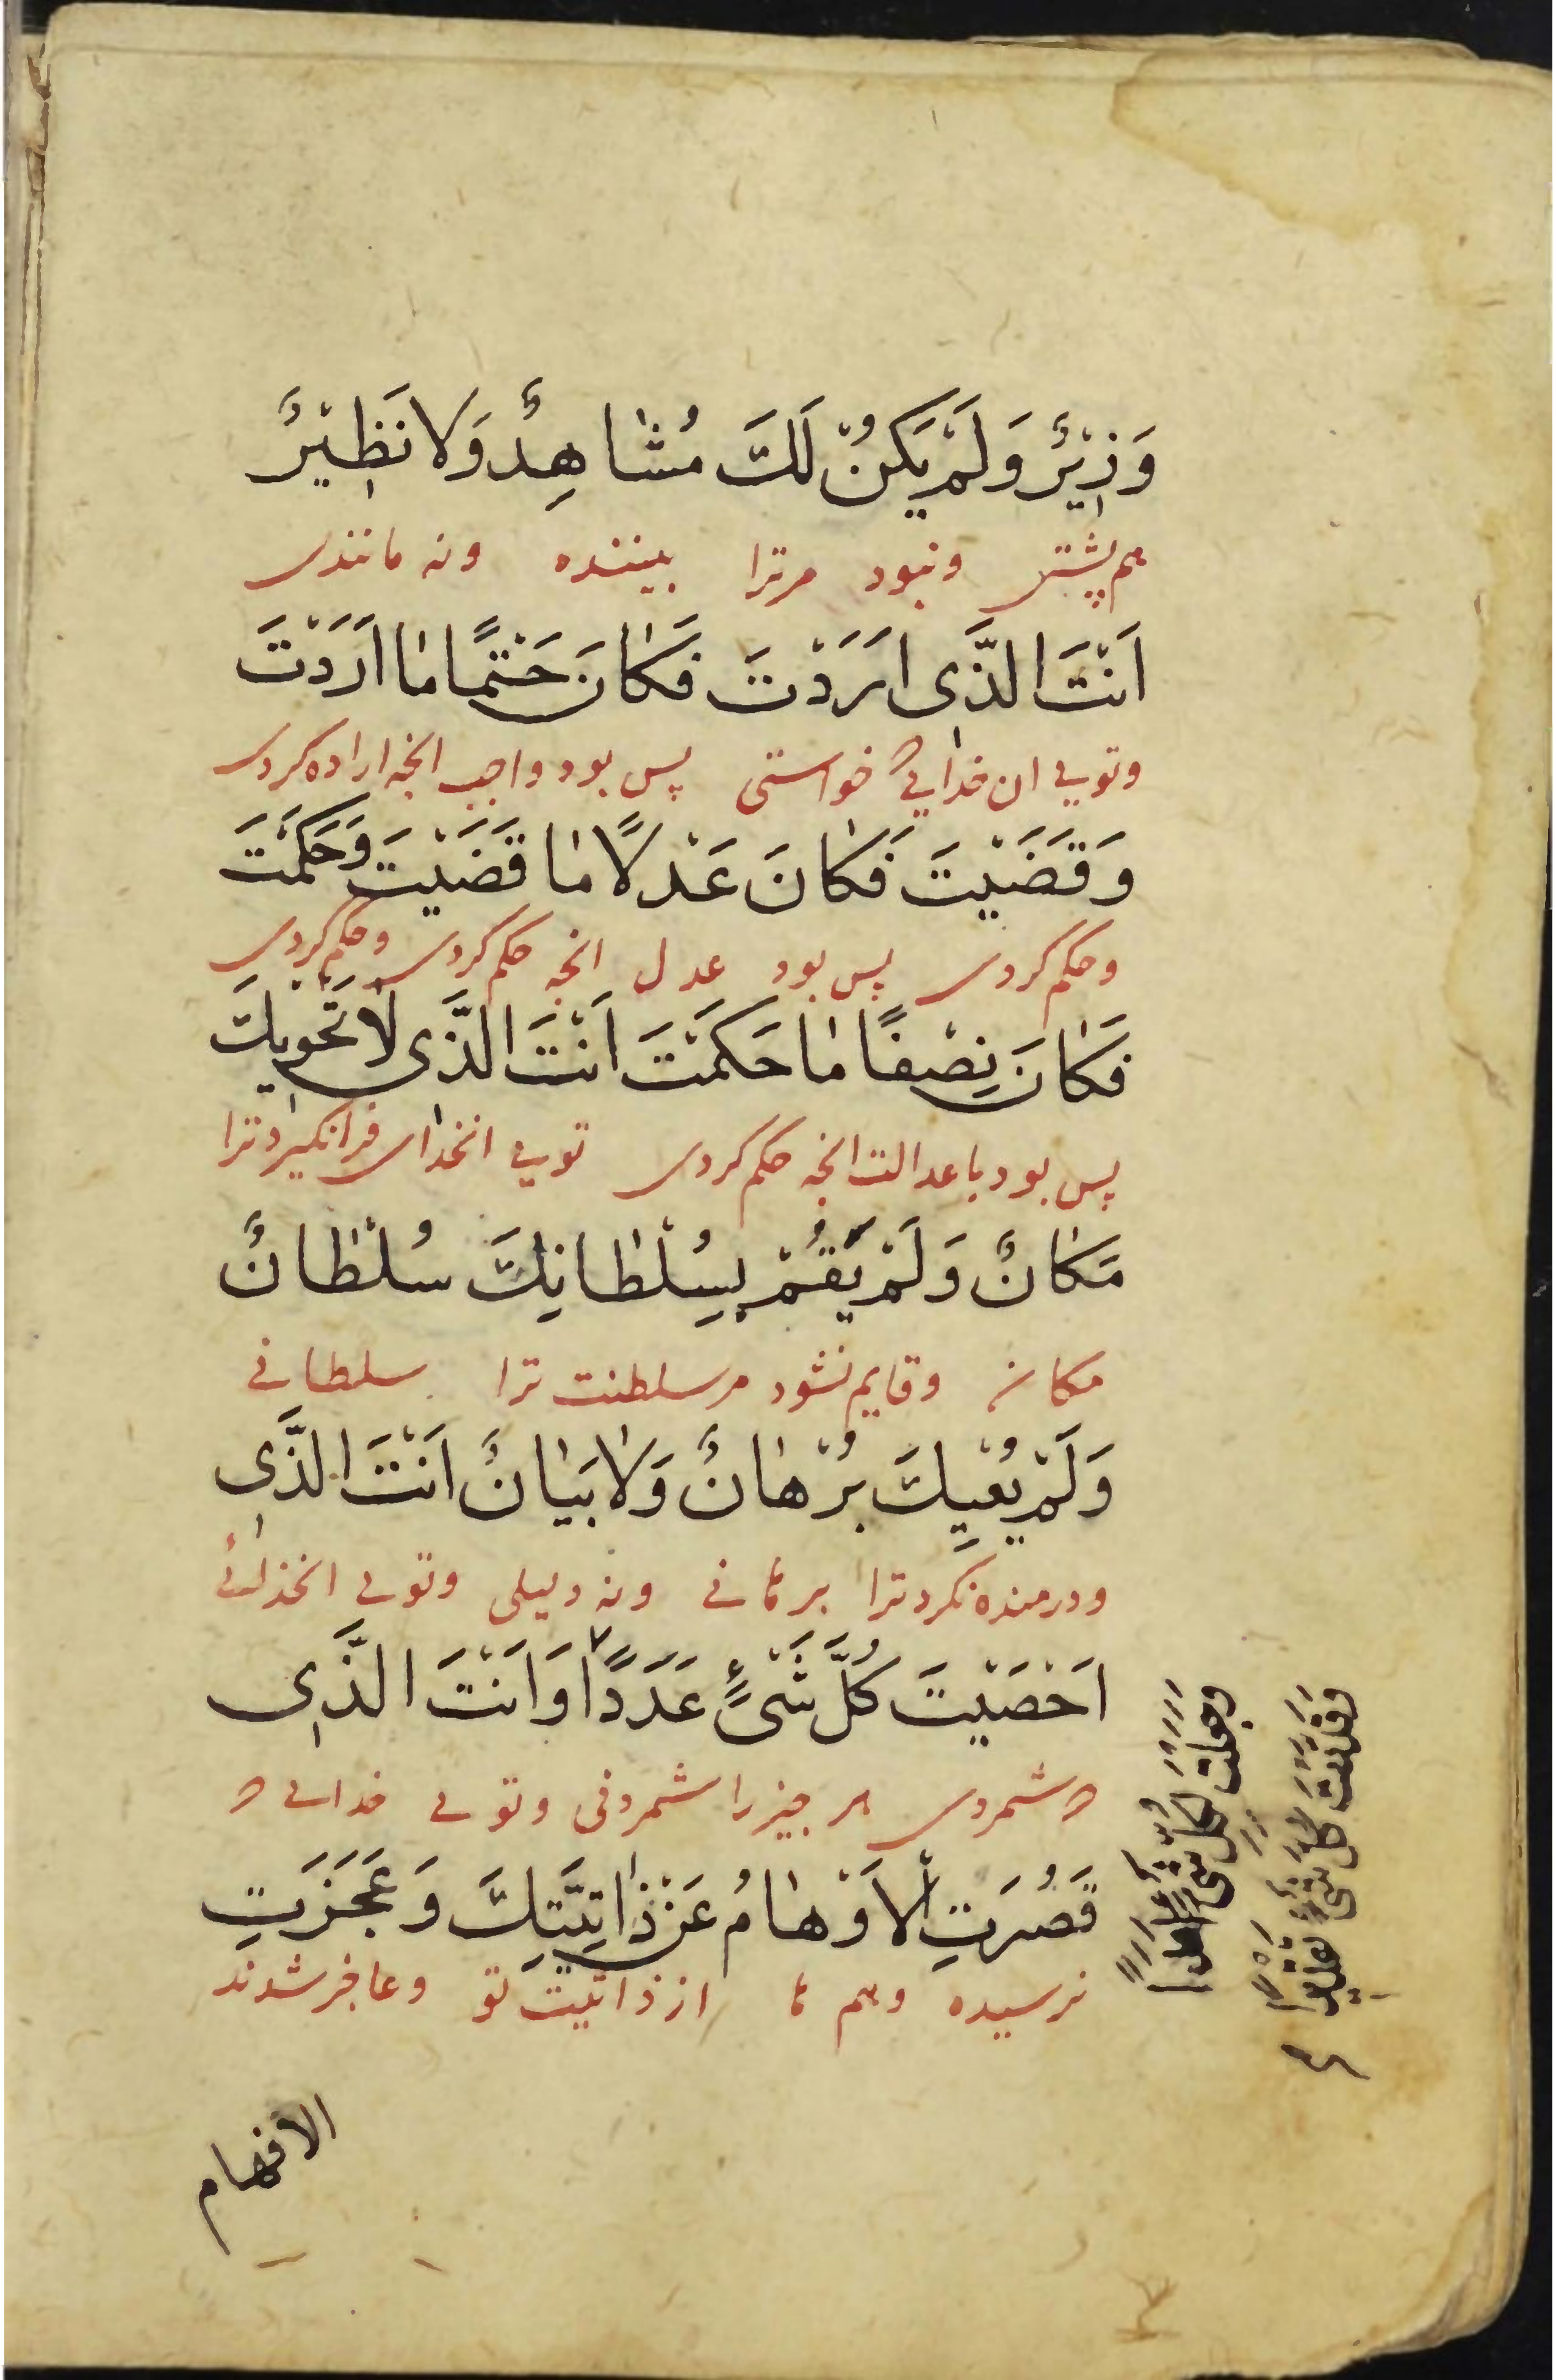 وَزِيْرٌ وَلَمْ يَكُنْ لَكَ مُشَاهِدٌ وَلَا نَظِيْرٌ
هم پشتی ونبود مرترا بیننده ونه مانندی
اَنْتَ الَّذِى اَرَدْتَ فَكَانَ حَتْمًا مَا اَرَدْتَ
وتویی ان خدایی که خواستی پس بود واجب انچه اراده کردی
وَقَضَيْتَ فَكَانَ عَدْلًا مَا قَضَيْتَ وَحَكَمْتَ
وحکم کردی پس بود عدل انچه حکم کردی وحکم کردی
فَكَانَ نِصْفًا مَا حَكَمْتَ اَنْتَ الَّذِى لَا يَحْوِيكَ
پس بود با عدالت انچه حکم کردی تویی انخدای فرانگیرد ترا
مَكَانٌ وَلَمْ يَقُمْ بِسُلْطَانِكَ سُلْطَانٌ
مکانی وقایم نشود مر سلطنت ترا سلطانی
وَلَمْ يُعْيِكَ بُرْهَانٌ وَلَا بَيَانٌ اَنْتَ الَّذِى
ودرمنده نکرد ترا برهانی ونه دلیلی وتویی انخدائی
اَحْصَيْتَ كُلَّ شَىْءٍ عَدَدًا وَاَنْتَ الَّذِى
که شمردی هر چیز را شمردنی وتویی خدایی که
قَصُرَتِ الْاَوْهَامُ عَنْ ذَاتِيَّتِكَ وَعَجَزَتِ
نرسیده وهم ها از ذاتیت تو وعاجز شدند
وجعلت لكل شئ امدا
وقدرت كل شئ تقديرا
الافهام